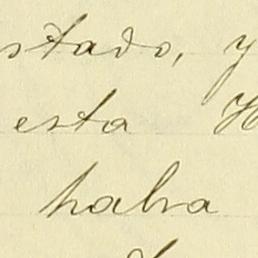 stado, y
esta H
habra